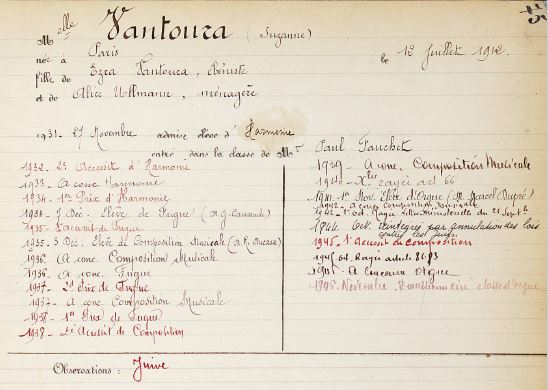 Melle Vantoura (Suzanne)
née à Paris le 12 Juillet 1912.
fille de Ezra Vantoura, ébéniste
et de Alice Ullmann, ménagère
1931. 27 Novembre admise élève d'Harmonie
entré dans la classe de Mr Paul Fauchet
1932. 2e Accessit d'Harmonie
1933. A conc. Harmonie
1934. 1er Prix d'Harmonie
1934. 7 Déc. Elève de Fugue (N. Caussade)
1935. 1er Accessit de Fugue
1935. 3 Déc. Elève de Composition Musicale
1936. A conc. Composition Musicale
1936. A conc. Fugue
1937. 2d Prix de Fugue
1937. A conc. Composition Musicale
1938. 1er Prix de Fugue
1938. 2e Accessit de Composition
1939. A conc. Composition Musicale
rayée art. 66
1941. 1er Nov. élève d'Orgue (M. Marcel Dupré)
1942. A conc. Composition Musicale
1942. Rayée Lettre Ministérielle du 21 Sept.
1944. Oct. réintégrée par annulation des lois
contre les Juifs.
1945. 1er Accessit de Composition
Oct. Rayée article
A concouru Orgue
Novembre. Démissionnaire classe d'orgue
Observations : Juive